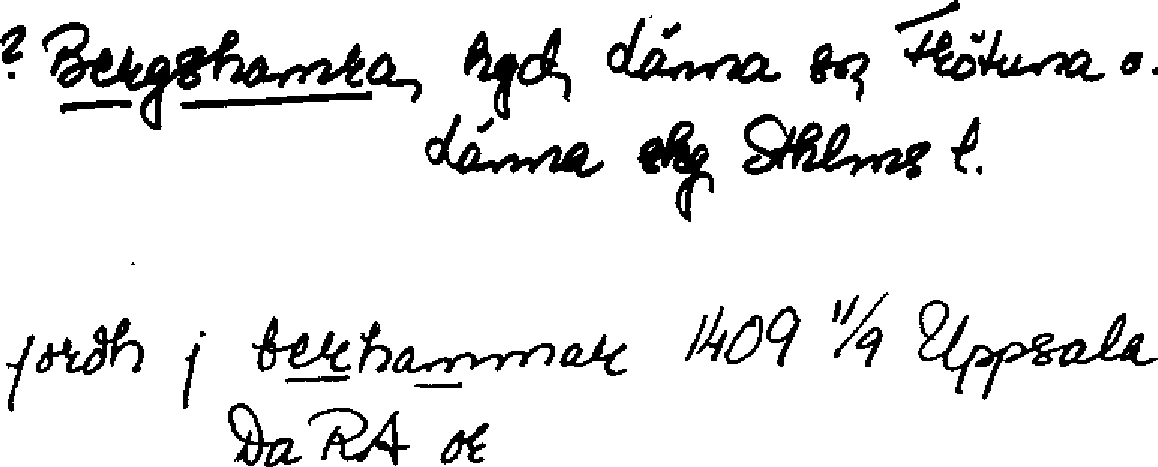 ? Bergshamra, hgd, Länna sn, Frötuna o.
Länna skg, Sthlms l.
jordh j berhammar 1409 11/9 Uppsala
Da RA or